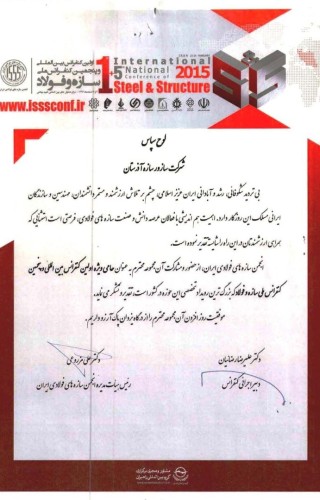 اولین کنفرانس بین المللی
و پنجمین کنفرانس ملی
سازه و فولاد
www.isssconf.ir
1st International
5 National
Conference of
Steel & Structure
2015
لوح سپاس
شرکت سازور سازه آذرستان
بی تردید شکوفائی، رشد و آبادانی ایران عزیز اسلامی، چشم بر تلاش ارزشمند و مستمر دانشمندان، مهندسین و سازندگان
ایرانی
این روزگار دارد. اهمیت هم اندیشی با فعالان عرصه دانش و صنعت سازه های فولادی، فرصتی است استثنایی که
همراهی ارزشمندتان در این راه را شایسته تقدیر نموده است.
انجمن سازه های فولادی ایران، از حضور و مشارکت آن مجموعه محترم به عنوان حامی ویژه اولین کنفرانس بین المللی و پنجمین
کنفرانس ملی سازه و فولاد که بزرگ ترین رویداد تخصصی این حوزه در کشور است تقدیر و تشکر می نماید.
موفقیت روز افزون آن مجموعه محترم را از درگاه یزدان پاک آرزو داریم.
دکتر علیرضا رضائیان
دبیر اجرائی کنفرانس
دکتر
رئیس هیات مدیره انجمن سازه های فولادی ایران